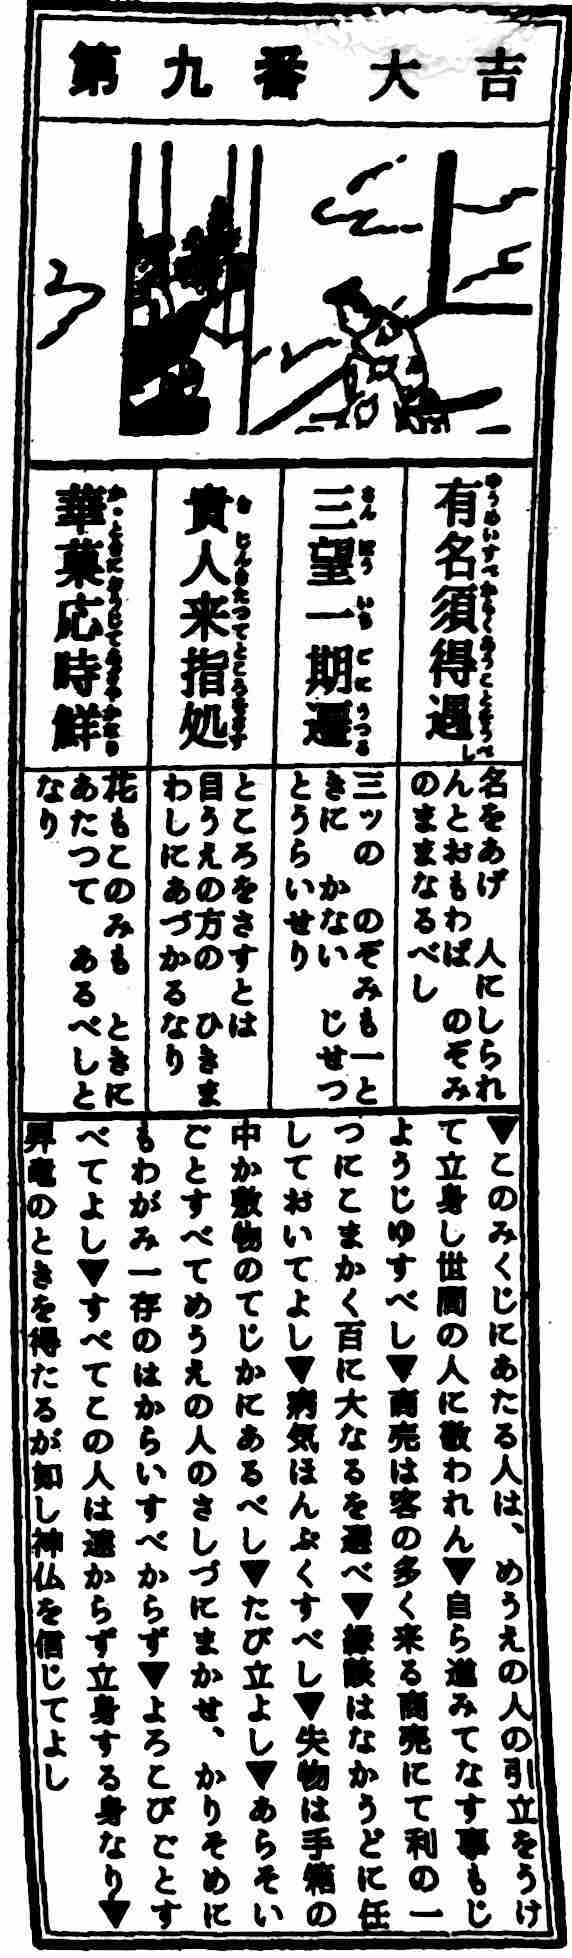 第九番 大吉
有名須得遇
ゆうめいすべからくあうことをうべし
三望一期遷
さんぼういちごにうつる
貴人来指処
きじんきたつてところをさす
華菓応時鮮
かっときにおうじてあざやかなり
名をあげ 人にしられ
んとおもわば のぞみ
のままなるべし
三ッの のぞみも一と
きに かない じせつ
とうらいせり
ところをさすとは
目うえの方の ひきま
わしにあづかるなり
花もこのみも ときに
あたつて あるべしと
なり
▼このみくじにあたる人は、めうえの人の引立をうけ
て立身し世間の人に敬われん▼自ら進みてなす事もじ
ようじゆすべし▼商売は客の多く来る商売にて利の一
つにこまかく百に大なるを選べ▼縁談はなかうどに任
しておいてよし▼病気ほんぷくすべし▼失物は手箱の
中か敷物のてじかにあるべし▼たび立よし▼あらそい
ごとすべてめうえの人のさしづにまかせ、かりそめに
もわがみ一存のはからいすべからず▼よろこびごとす
べてよし▼すべてこの人は遠からず立身する身なり▼
昇竜のときを得たるが如し神仏を信じてよし